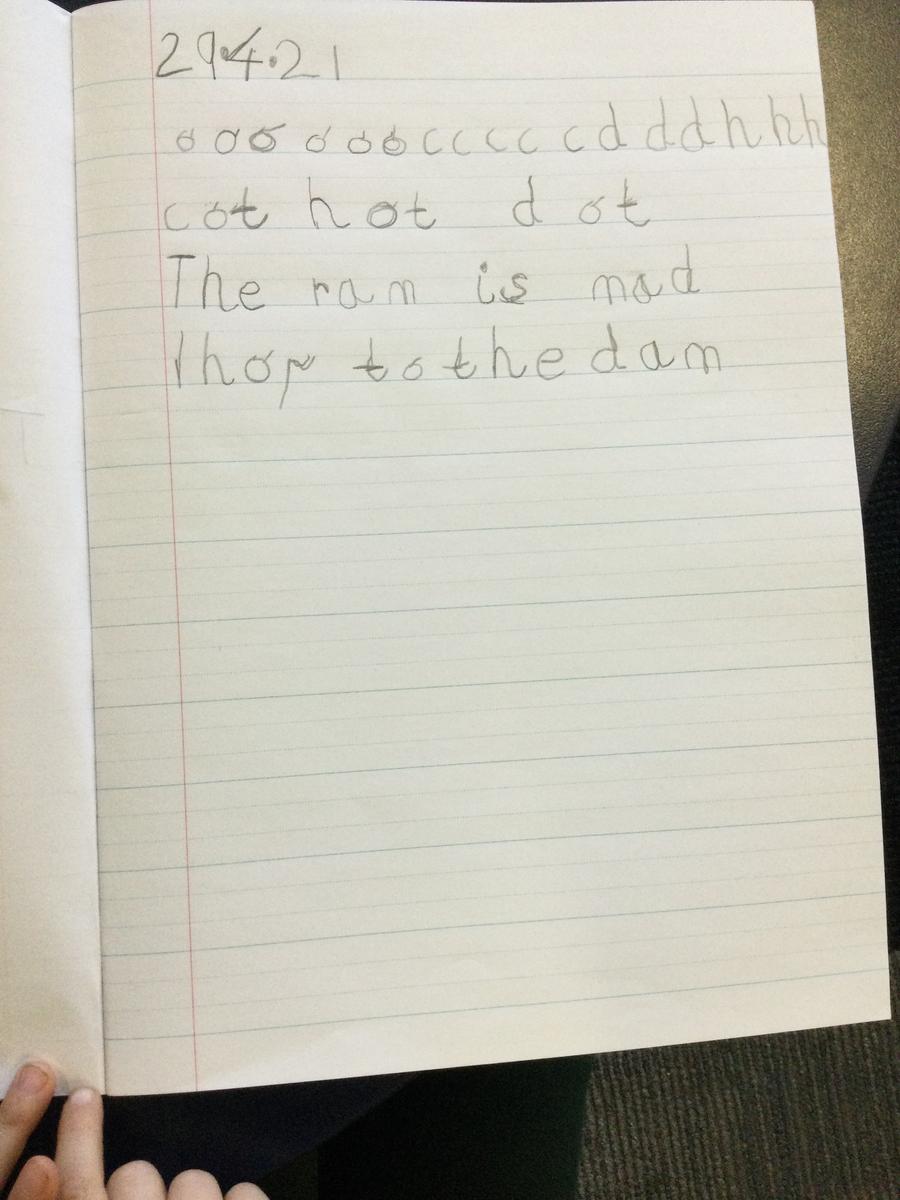 29.4.21
o o o o o o c c c c c d d d h h h
cot hot dot
The ram is mad
I hop to the dam